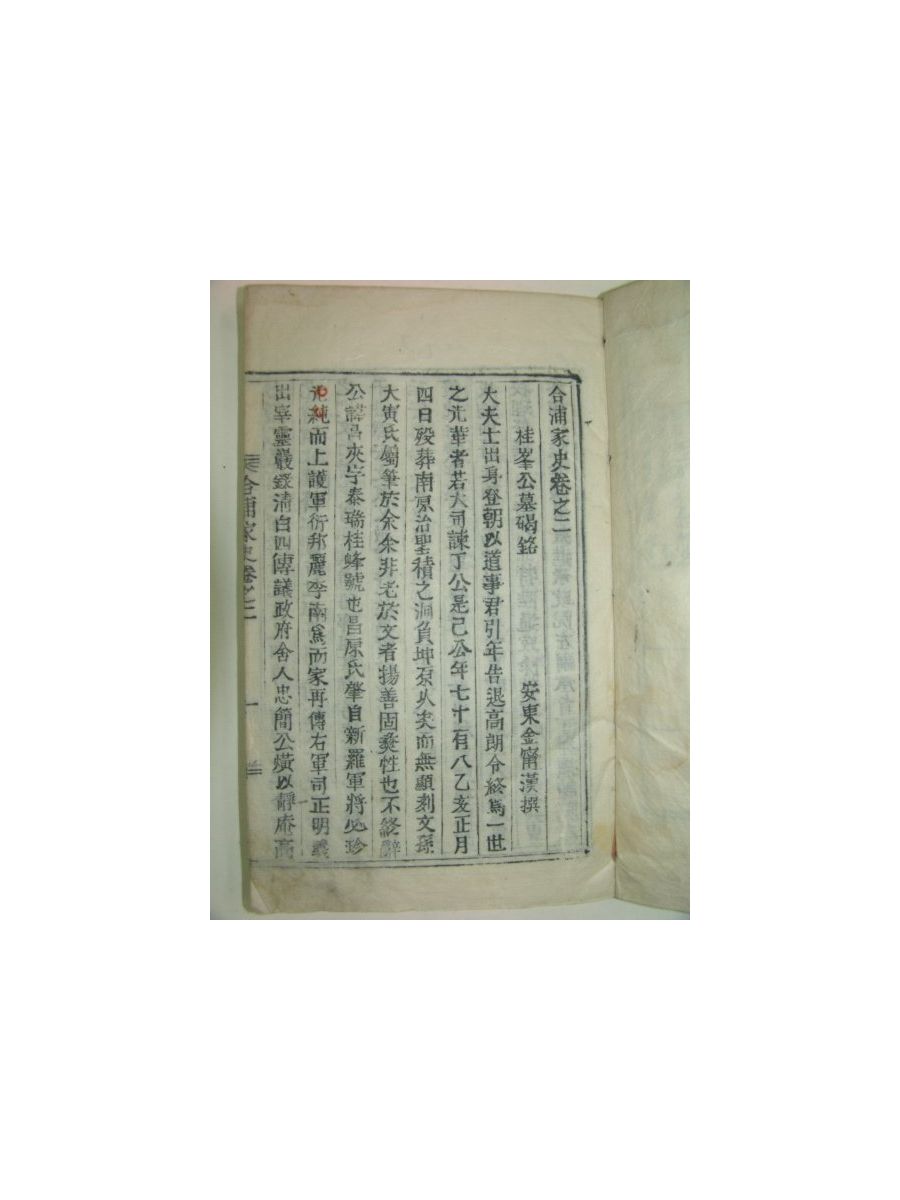 合浦家史卷之二
桂峯公墓碣銘 安東金甯漢撰
大夫士出身登朝以道事君引年告退高朗令終爲一世
之光華者若大司諫丁公是已公年七十有八乙亥正月
四日歿葬南原治聖積之洞負坤原久矣而無顯刻文孫
大寅氏屬筆於余余非老於文者揚善固彜性也不終辭
公諱昌夾字泰瑞桂蜂號也昌原氏肇自新羅軍將必珍
光純而上護軍衍邦麗季南爲而家再傳右軍司正明義
出宰靈巖錄淸白四傳議政府舍人忠簡公熿以靜庵高
合浦家史卷之二 一